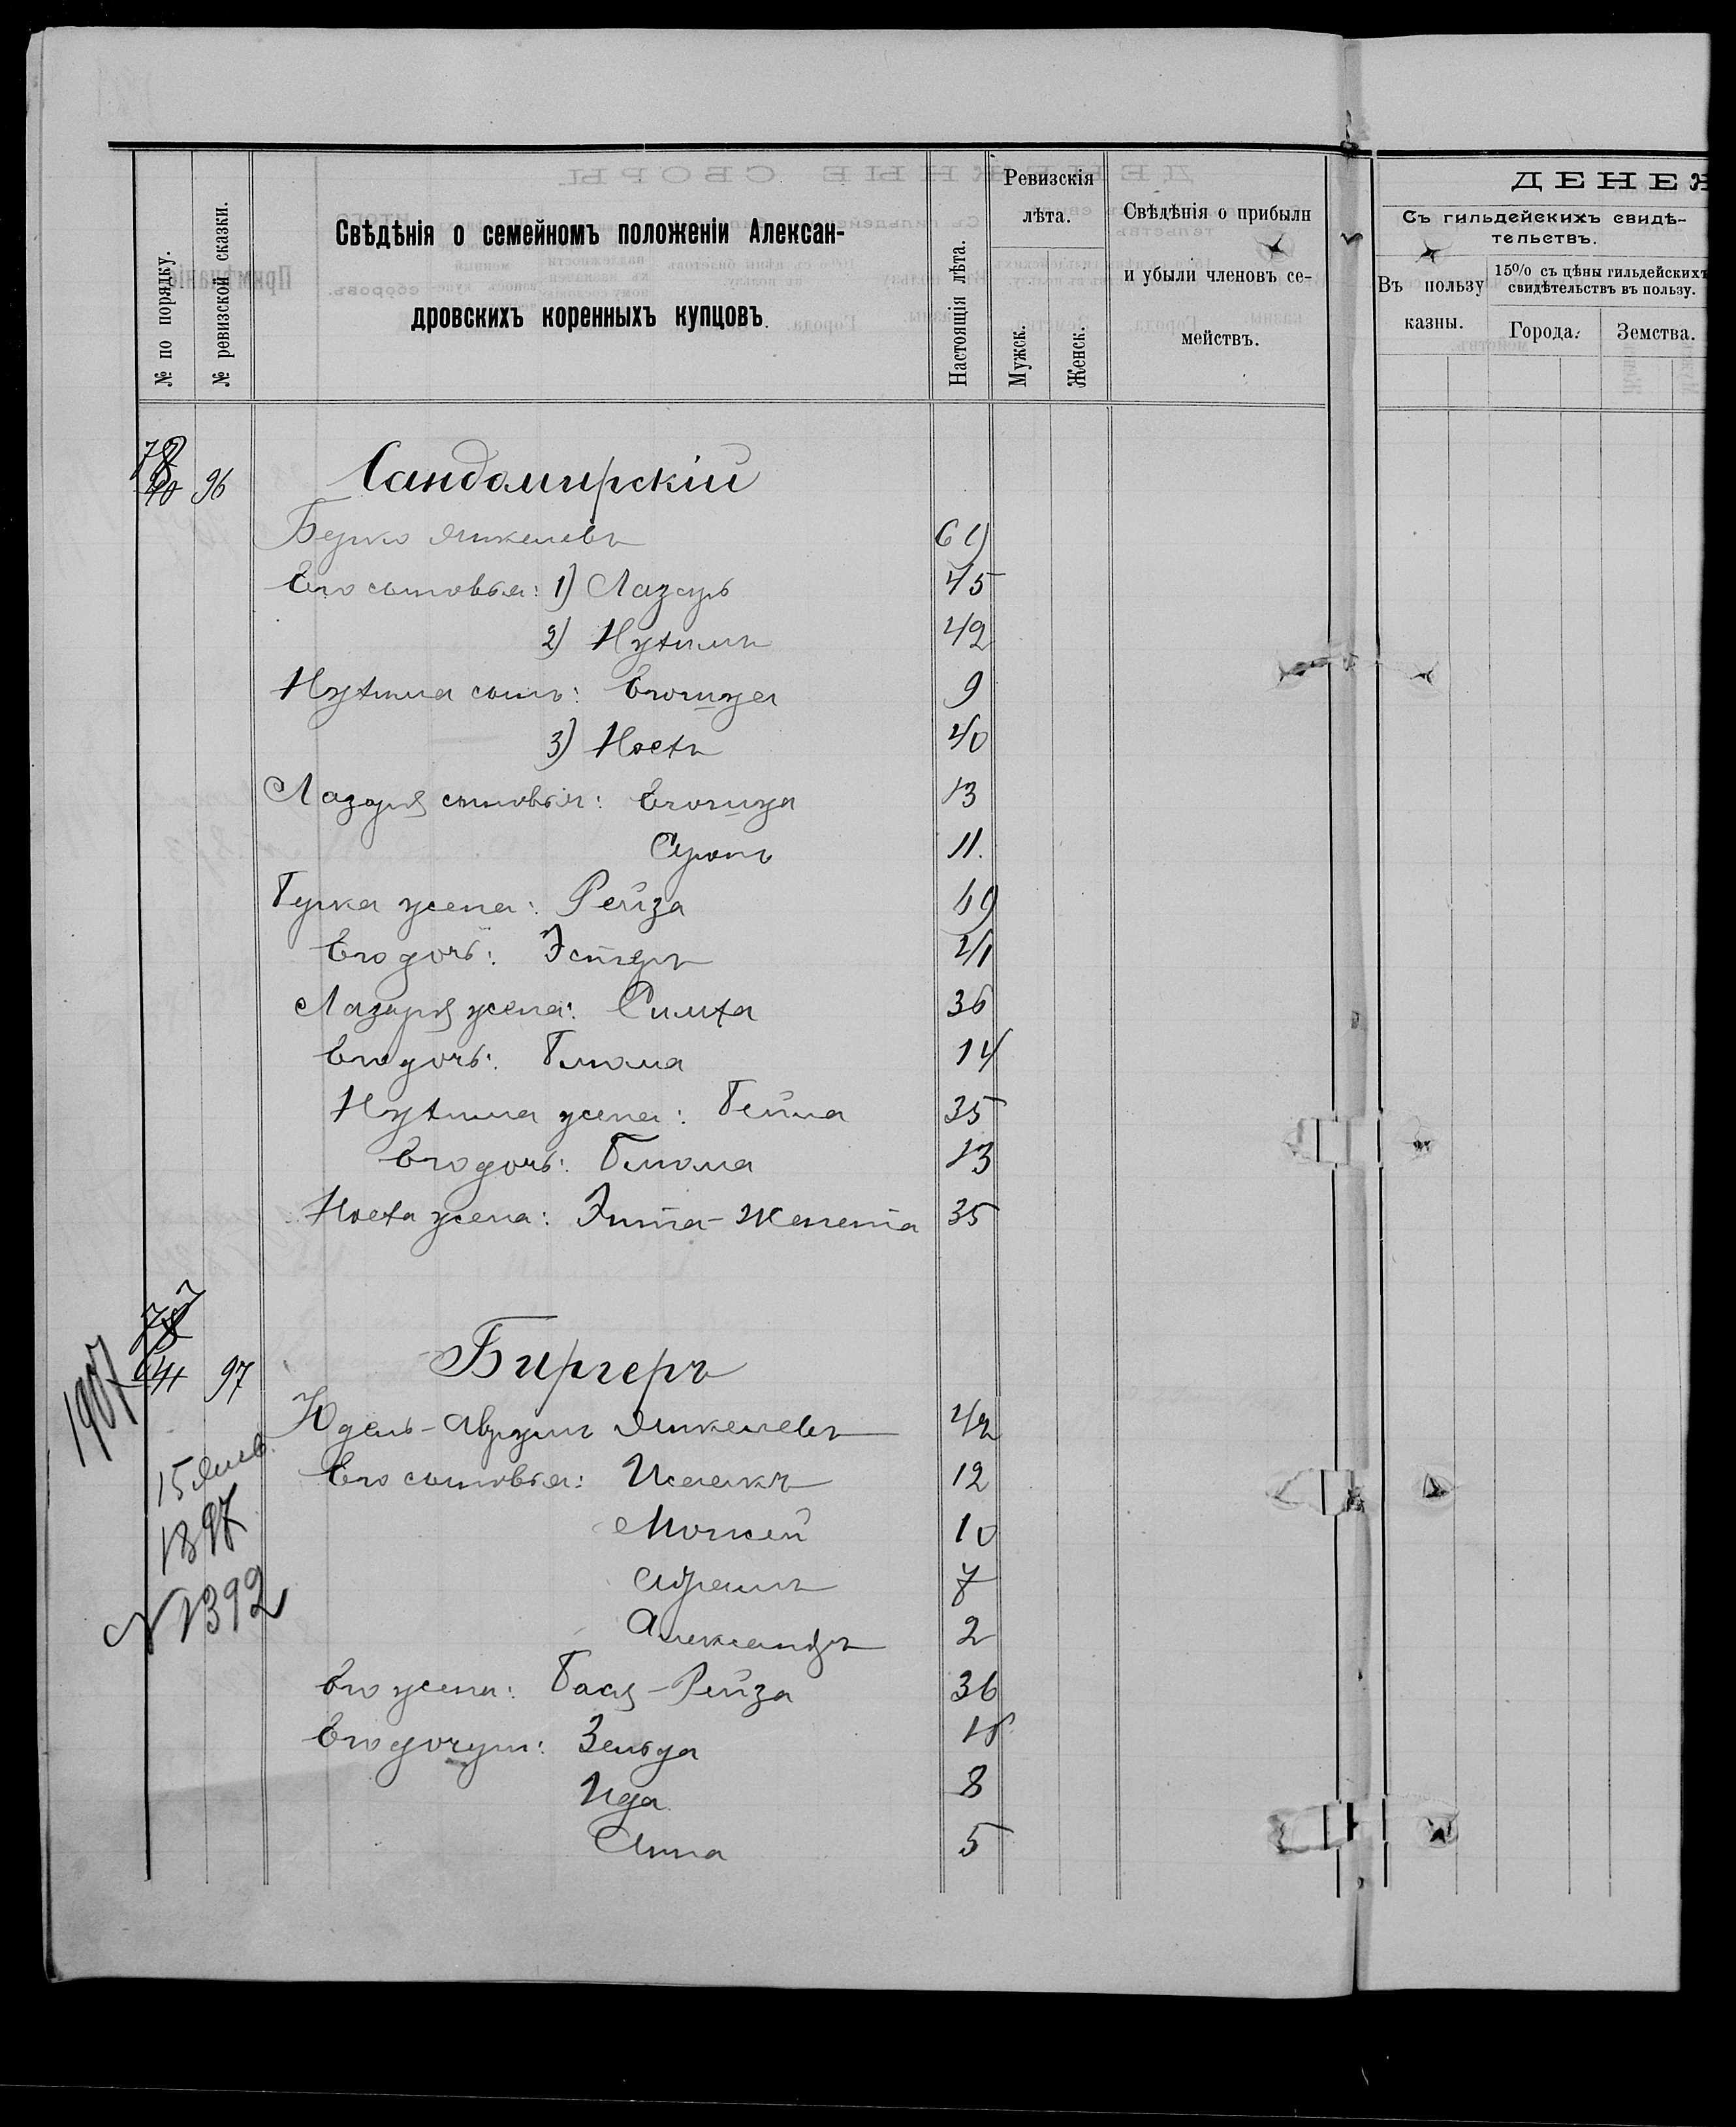 № по порядку.
№ ревизской сказки.
Свѣдѣнія о семейномъ положеніи Алексан-
дровскихъ коренныхъ купцовъ.
Настоящія лѣта.
Ревизскія
лѣта.
Мужск.
Женск.
Свѣдѣнія о прибыли
и убыли членовъ се-
мействъ.
ДЕНЕЖ
Съ гильдейскихъ свидѣ-
тельствъ.
Въ пользу
казны.
15% съ цѣны гильдейскихъ
свидѣтельствъ въ пользу.
Города.
Земства.
78
40 96 Сандомирскій
Берко Янкелевъ 69
Его сыновья: 1) Лазарь 45
2) Нухимъ 42
Нухима сынъ: Егошуа 9
3) Ноехъ 40
Лазаря сыновья: Егошуа 13
Аронъ 11.
Берка жена: Рейза 69
Его дочь: Эстеръ 21
Лазаря жена: Симха 36
Его дочь: Блюма 14
Нухима жена: Бейла 35
Его дочь: Блюма 13
Ноеха жена: Энта-Женета 35
41 97 Биргеръ
1907
Юдель-Авр​умъ Янкелевъ 42
15 Янв.
1897
№ 1392
Его сыновья: Исаакъ 12
Моисей 10
Абрамъ 7
Александръ 2
Его жена: Бася-Рейза 36
Его дочери: Зельда 15
Ида 8
Анна 5